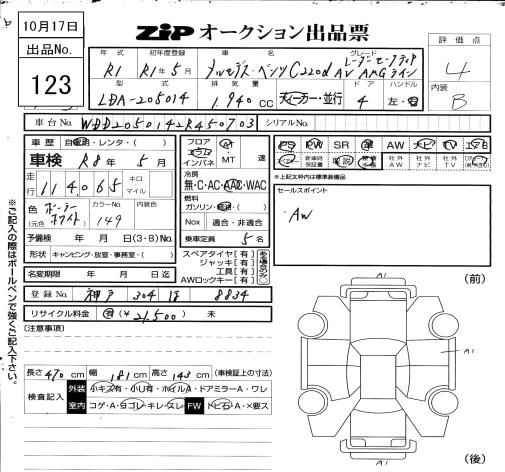 10月17日
ZIP オークション出品票
出品No.
123
評価点
4
内装
B
年式 初年度登録 車名 グレード
R1 R1年5月 メルセデス・ベンツC220d AV AMGライン
型式 排気量 ドア ハンドル
LDA-205014 1,940cc ディーラー・並行 4 左・右
車台No. WDD2050142R450703 シリアルNo.
車歴 自家用・レンタ・( )
車検 R8年5月
走行 114,065 キロ マイル
色 (元色) ポーラーホワイト カラーNo. 149 内装色
予備検 年 月 日(3・8)No.
形状 キャンピング・放室・事務室・( )
名変期限 年 月 日迄
登録No. 神戸 304 ほ 8834
リサイクル料金 有(¥21,500) 未
フロア コラム インパネ AT MT 速
冷房 無・C・AC・AAC・WAC
燃料 ガソリン・軽油・( )
Nox 適合・非適合
乗車定員 5名
スペアタイヤ[有]
ジャッキ[有]
工具[有]
AWロックキー[有]
PS PW SR 革 AW ナビ TV エアB
新車時保証書 取説 社外AW 社外ナビ
*上記太枠内は標準装備品
セールスポイント
・AW
[注意事項]
長さ470cm 幅181cm 高さ143cm (車検証上の寸法)
検査記入 外装 小キズ有・小U有・ホイルA・ドアミラーA・ワレ
室内 コゲ・A・ヨゴレ・キレ・スレ FW トビ石・A・×要ス
※ご記入の際はボールペンで強くご記入下さい。
(前)
A1
A1
A1
(後)